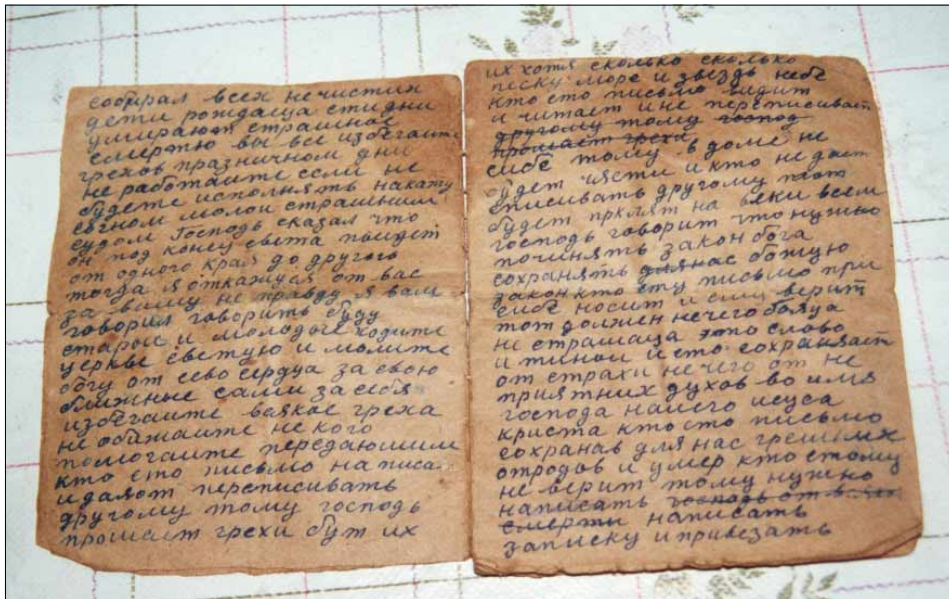 собирал всех нечистих
дети рождаща сти дни
умирают страшное
смертю вы все избегаите
грехов празничном дни
не работаите если не
будете исполнять накажу
согном молои страшним
судом Господь сказал что
он под конец света поидет
от одного края до другого
тогда я откажуся от вас
за вашу не правду я вам
говорил говорить буду
старои и молодые ходите
церкве светую и молите
богу от сево сердца за свою
ближные сами за себя
избегаите васкае греха
не обижаите не кого
помогаите передаюшим
кто ето письмо написа
идают переписивать
другому тому господь
прошает грехи бут их
их хотя сколько сколько
песку море и звездь небе
кто ето письмо видит
и читает и не переписивает
другому тому господ
прошает грехи
сибе тому в доме не
будет части и кто не дает
списивать другому тот
будет прклят на веки всем
господь говорит что нужно
починять закон бога
сохранять для нас божую
закон кто ету письмо при
сибе носит и ему верит
тот должен нечего бояца
не страшаца это слово
и тинои и ето сохраняет
от страхи не чего от не
приятних духов во имя
господа нашего исуса
криста кто ето письмо
сохранав для нас грешних
отродов и умер кто етому
не верит тому нужно
написать господь от
смерти написать
записку и привезать